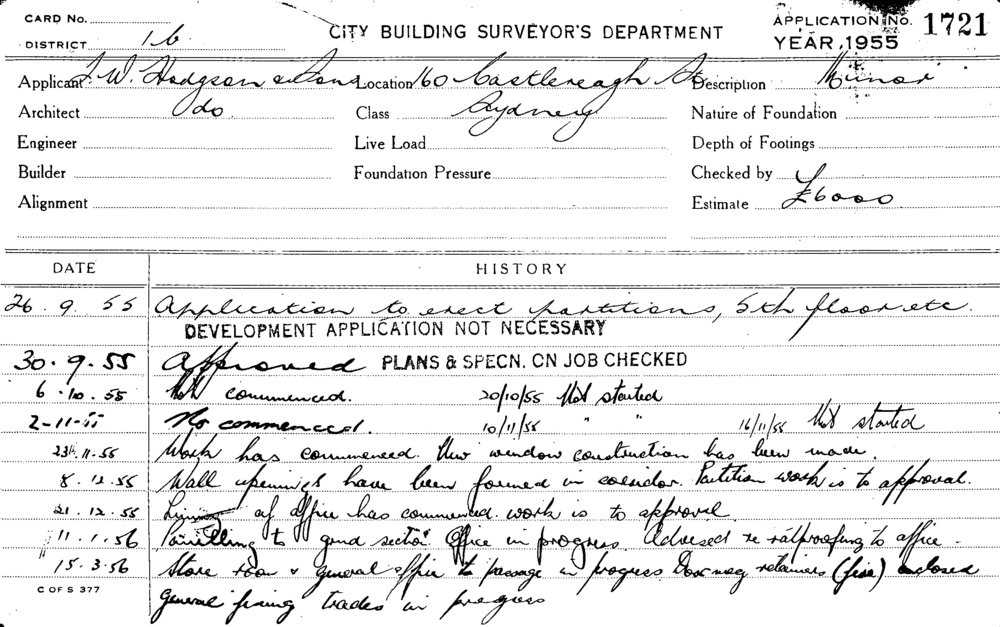 CARD No.
DISTRICT 16
CITY BUILDING SURVEYOR'S DEPARTMENT
APPLICATION No. 1721
YEAR, 1955
Applicant J. W. Hodgson & Sons Location 160 Castlereagh St Description Minor
Architect do Class Sydney Nature of Foundation
Engineer Live Load Depth of Footings
Builder Foundation Pressure Checked by
Alignment Estimate £6000
DATE HISTORY
26. 9. 55 Application to erect partitions, 5th floor etc.
DEVELOPMENT APPLICATION NOT NECESSARY
30. 9. 55 Approved PLANS & SPECN. ON JOB CHECKED
6. 10. 55 Not commenced. 20/10/55 Not started
2-11-55 No commenced. 10/11/55 " " 16/11/55 Not started
23. 11. 55 Work has commenced. New window construction has been made.
8. 12. 55 Wall openings have been formed in corridor. Partition work is to approval.
21. 12. 55 Lining of office has commenced. work is to approval
11. 1. 56 Panelling to Office in progress. Advised re ratproofing to office.
15. 3. 56 Store room & general office to passage in progress Door retainers (fire)
C OF S 377
general fixing trades in progress